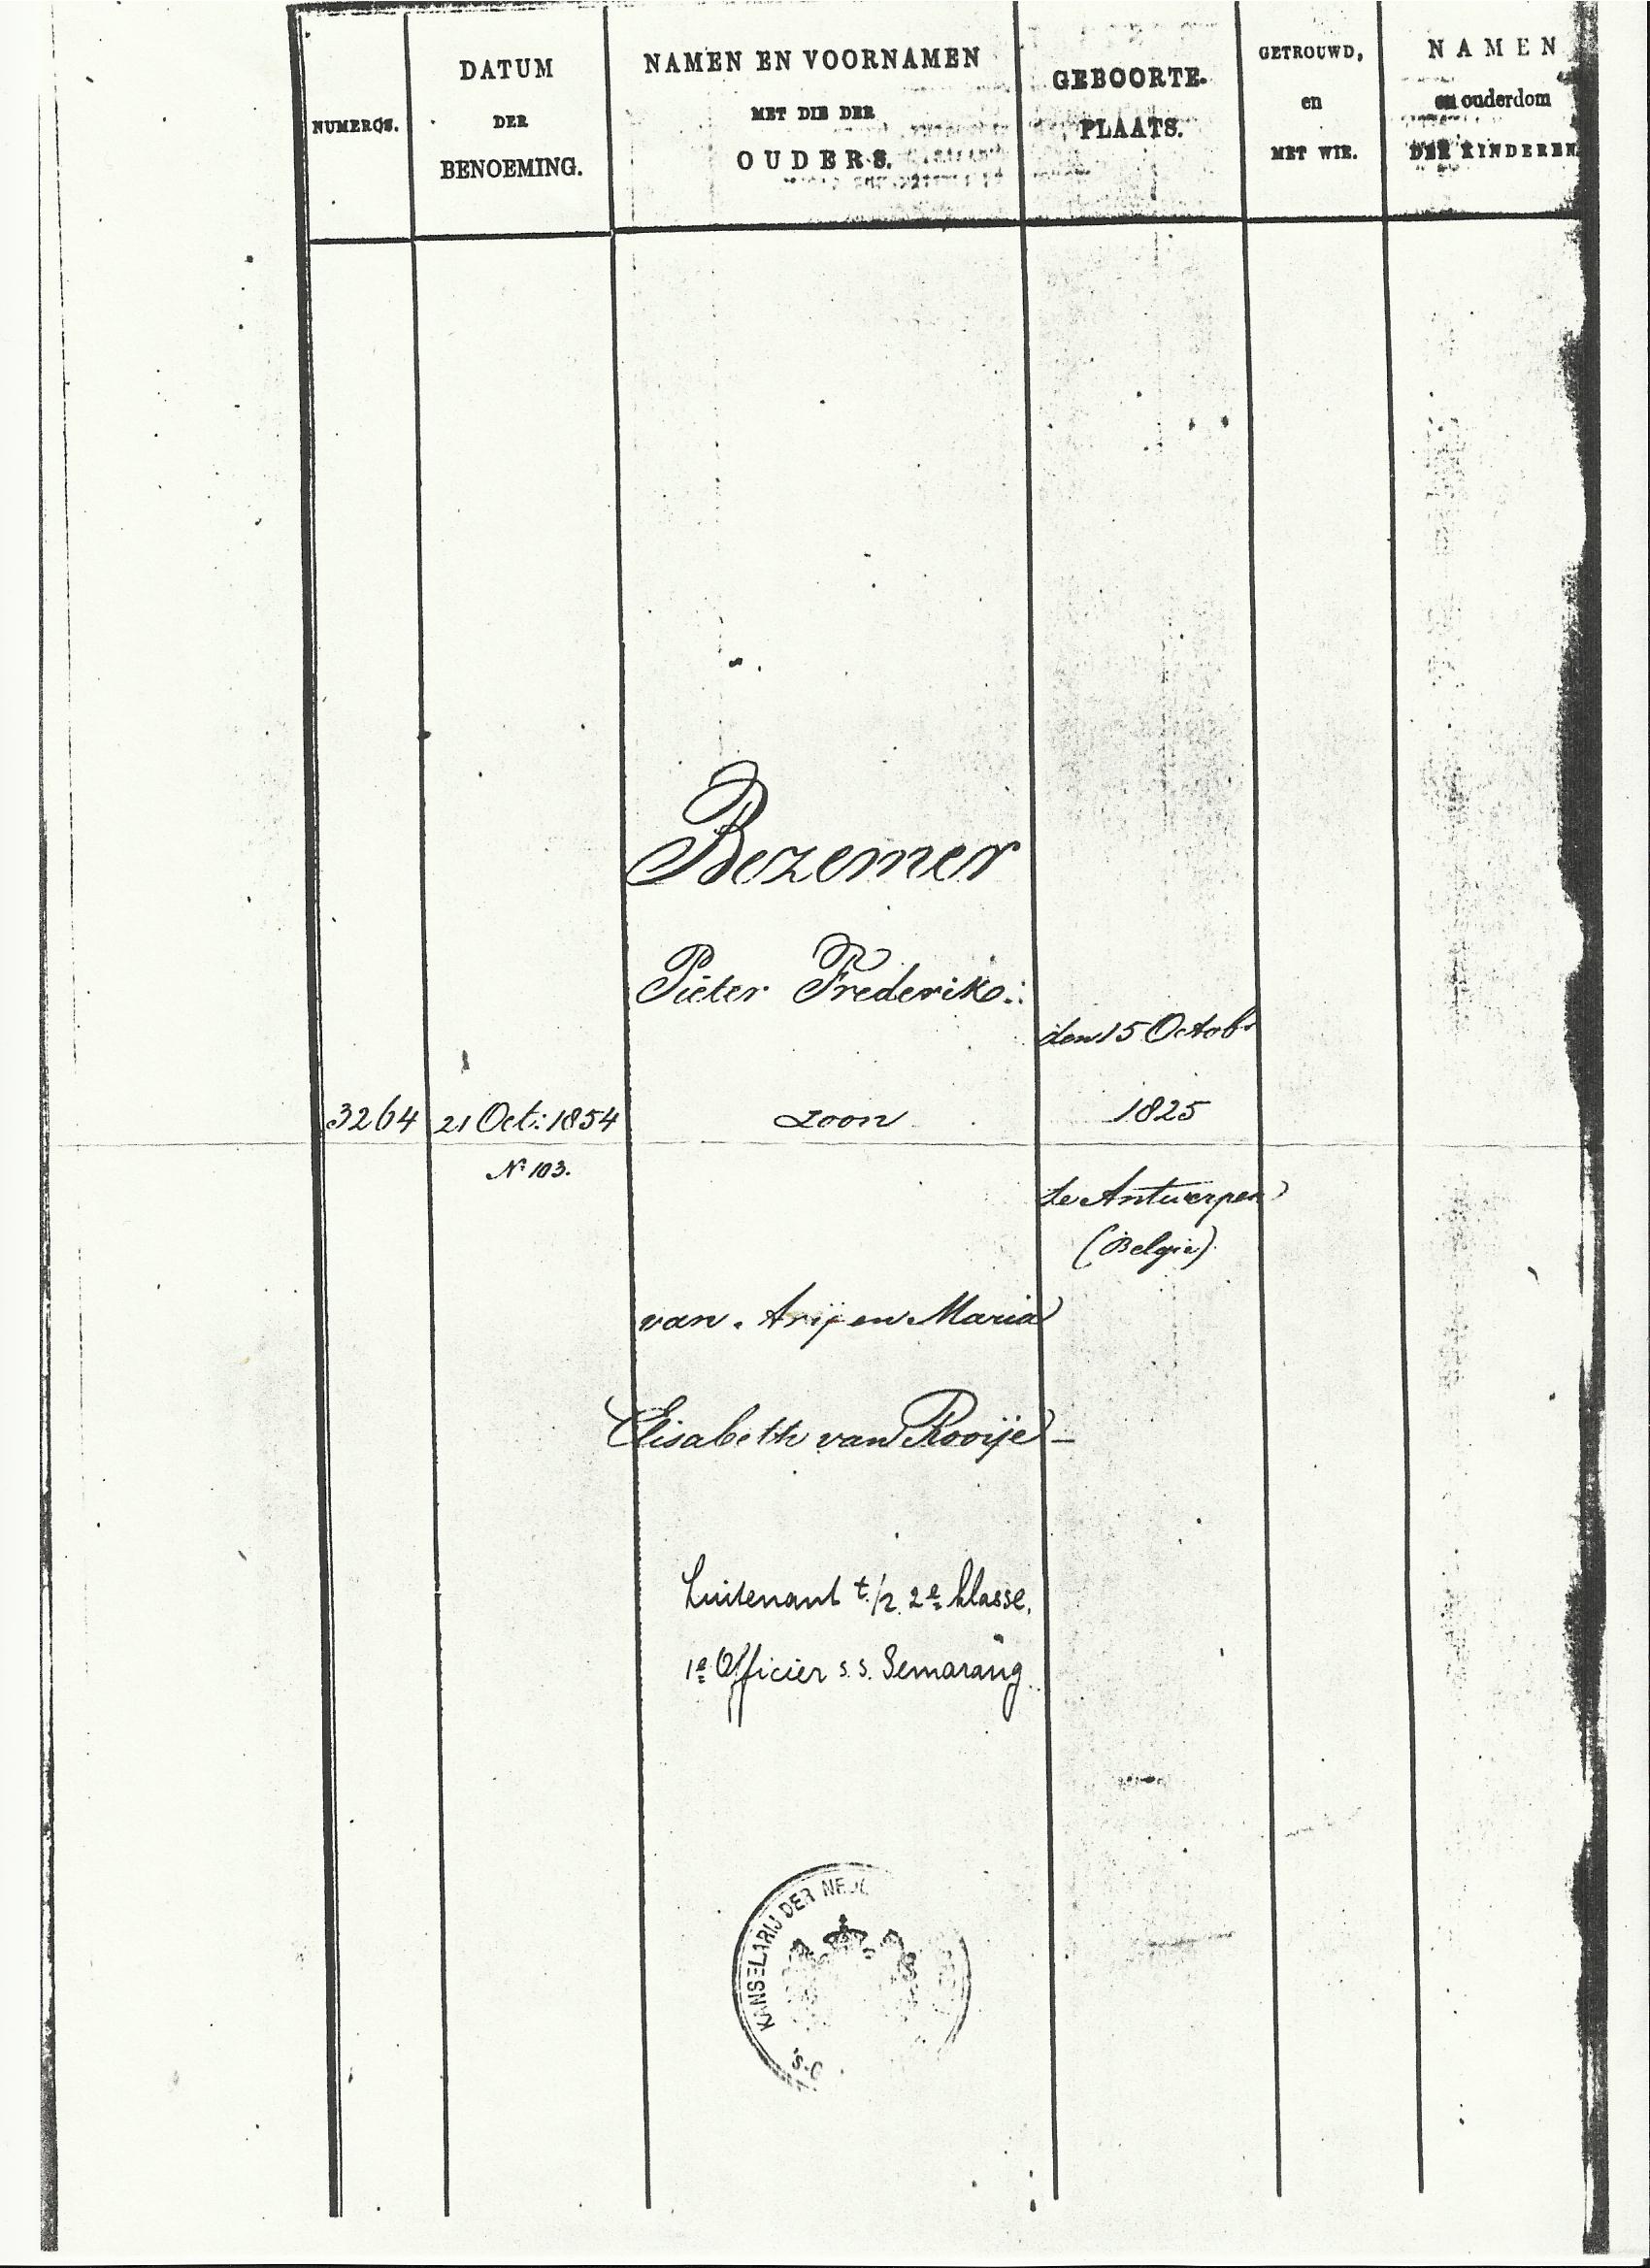 NUMEROS.
DATUM
DER
BENOEMING.
NAMEN EN VOORNAMEN
MET DIE DER
OUDERS.
GEBOORTE-
PLAATS.
GETROUWD,
en
MET WIE.
NAMEN
en ouderdom
DER KINDEREN
Bezemer
Pieter Frederik
den 15 Octobr
3264 21 Oct: 1854 zoon 1825
No 103.
te Antwerpen
(Belgie)
van Arij en Maria
Elisabeth van Rooije
Luitenant t./z. 2e klasse.
1e Officier s.s. Semarang
KANSELARIJ DER NED
'S-G